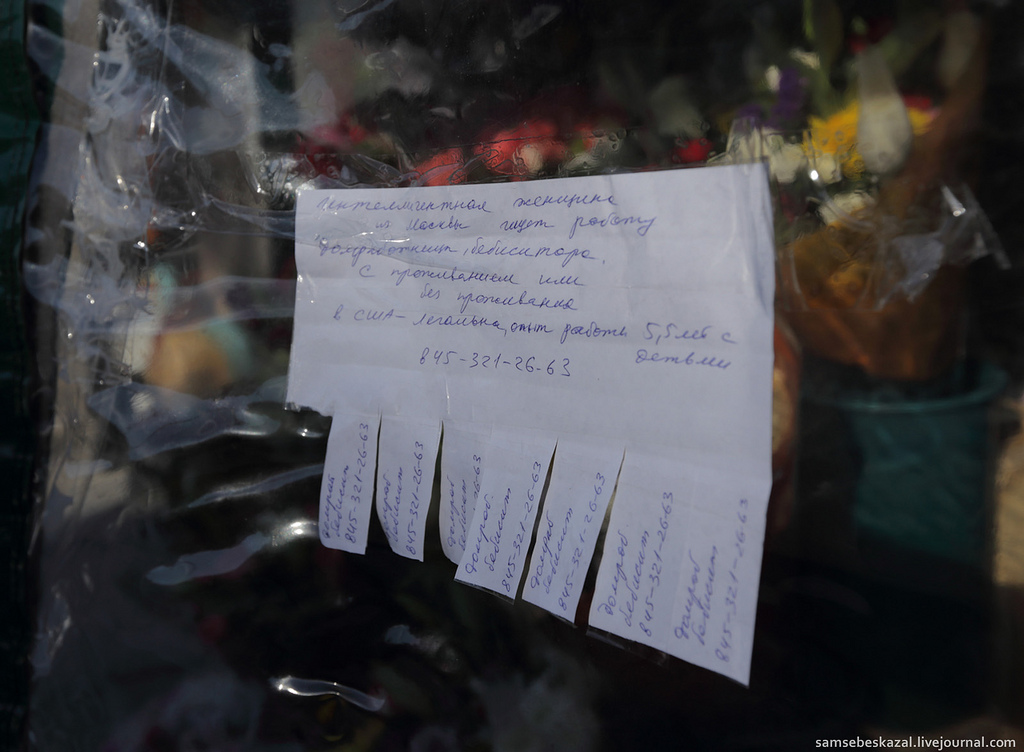 Интеллигентная женщина
из Москвы ищет работу
домработницы, бебиситора,
с проживанием или
без проживания
в США - легальна, опыт работы 5,5 лет с
детьми
845-321-26-63
домраб
бебисит
845-321-26-63
домраб
бебисит
845-321-26-63
домраб
бебисит
845-321-26-63
домраб
бебисит
845-321-26-63
домраб
бебисит
845-321-26-63
домраб
бебисит
845-321-26-63
домраб
бебисит
845-321-26-63
samsebeskazal.livejournal.com